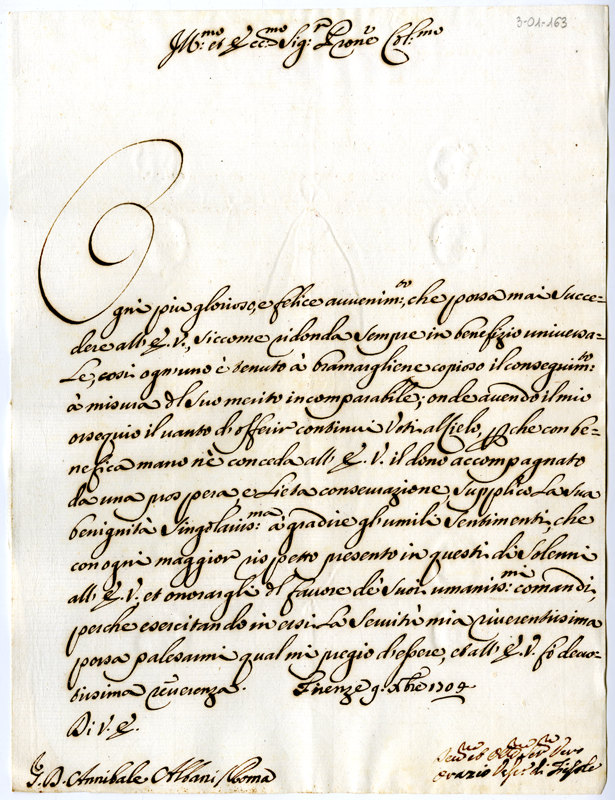 3-01-163
Ill:mo et Ecc:mo Sig:r Pron'e Col:mo
Ogni piu glorioso, e felice avvenim:to, che possa mai succe-
dere all'E.V., siccome ridonda sempre in benefizio universa-
le, così ogn'uno è tenuto à bramargliene copioso il conseguim:to
à misura del suo merito incomparabile; onde avendo il mio
ossequio il vanto di offerir continui Voti al Cielo, perche con be-
nefica mano nè conceda all'E.V. il dono accompagnato
da una prospera, e lieta conservazione, supplico la sua
benignità singolariss:ma à gradire gl'umili sentimenti, che
con ogni maggior rispetto presento in questi dì solenni
all'E.V. et onorargli del favore de' suoi umaniss:mi comandi,
perche esercitando in essi la servitù mia riverentissima
possa palesarmi qual mi pregio d'essere, et all'E.V. fò devo-
tissima riverenza. Firenze 9. Xbre 1704
Di V.E.
S.D. Annibale Albani / Roma
Orazio Vesc.o di Fiesole